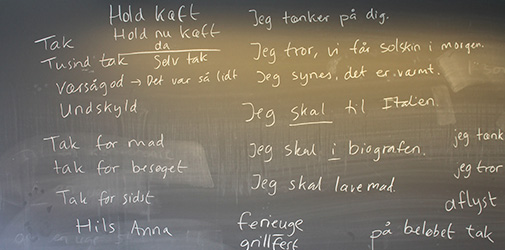 Hold kæft
Hold nu kæft
da
Tak
Tusind tak
Selv tak
Værsågod → Det var så lidt
Undskyld
Tak for mad
tak for besøget
Tak for sidst
Hils Anna
Jeg tænker på dig.
Jeg tror, vi får solskin i morgen.
Jeg synes, det er varmt.
Jeg skal til Italien.
Jeg skal i biografen.
Jeg skal lave mad.
ferieuge
grillfest
jeg tænk
jeg tror
aflyst
på beløbet tak